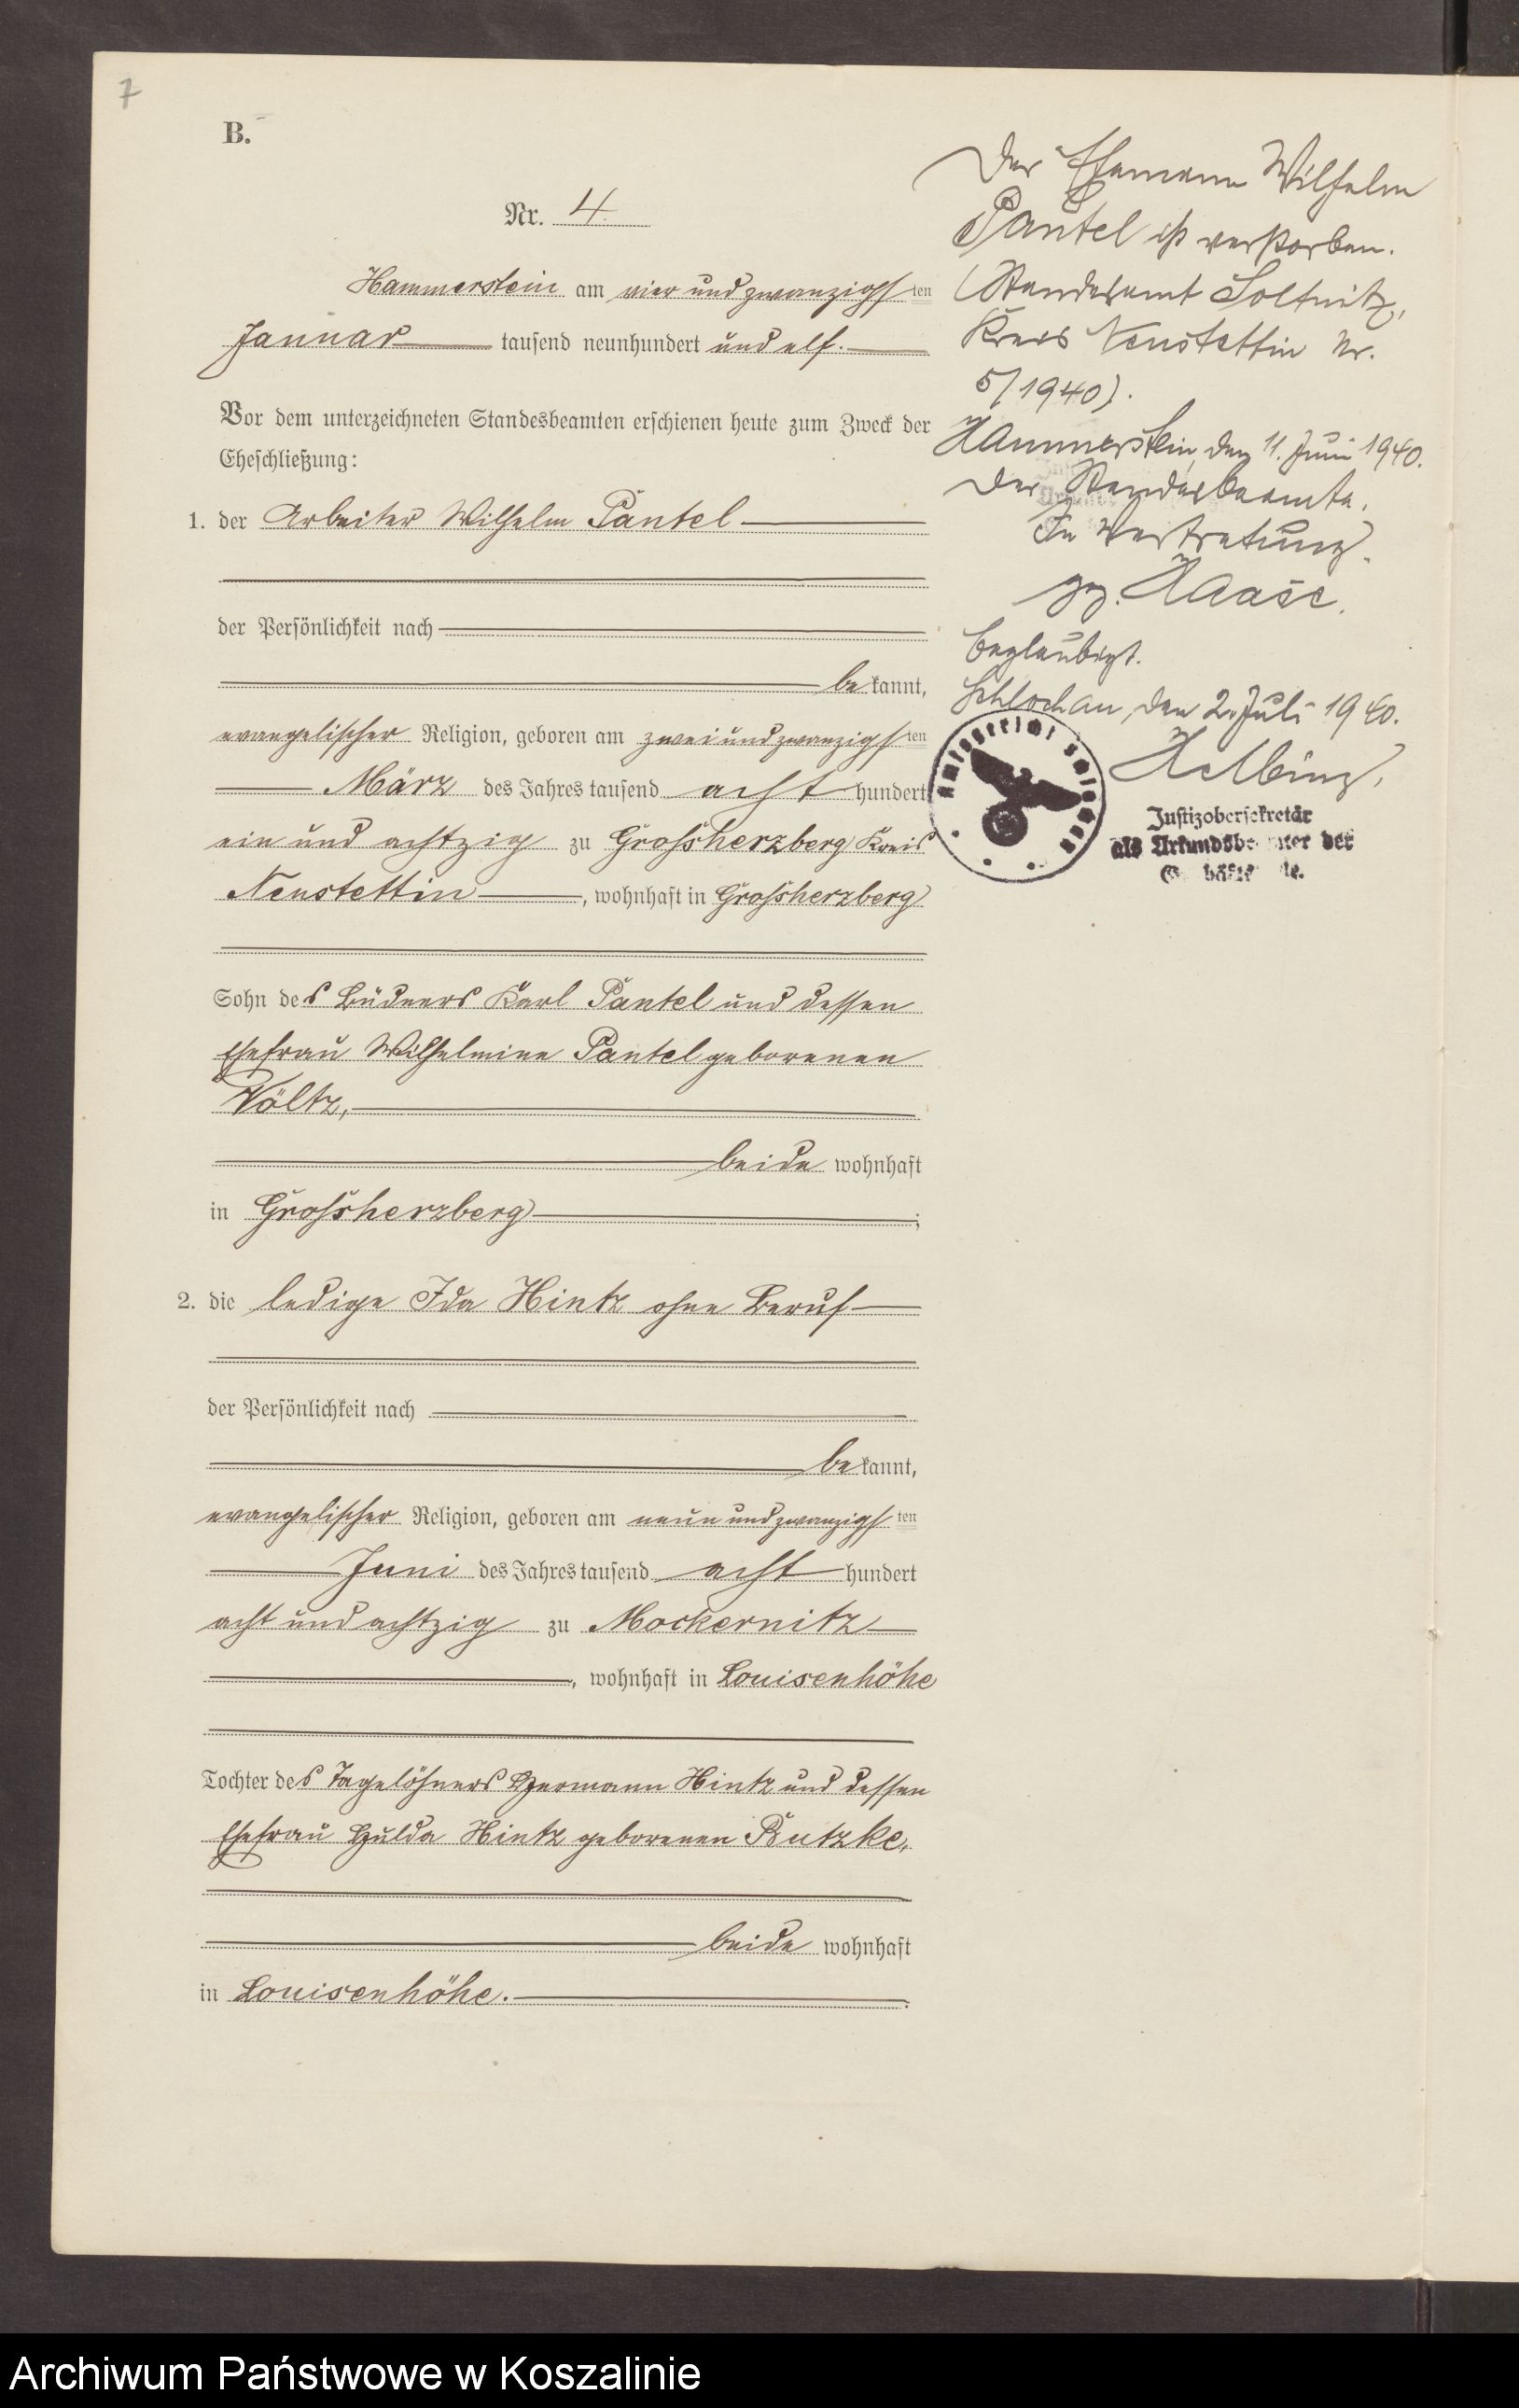 7
B.
Nr. 4.
Hammerstein am vier und zwanzigsten
Januar tausend neunhundert und elf.
Vor dem unterzeichneten Standesbeamten erschienen heute zum Zweck der
Eheschließung:
1. der Arbeiter Wilhelm Pantel
der Persönlichkeit nach
bekannt,
evangelischer Religion, geboren am zwei und zwanzigsten
März des Jahres tausend acht hundert
ein und achtzig zu Grossherzberg Kreis
Neustettin, wohnhaft in Grossherzberg
Sohn des Büdners Karl Pantel und dessen
Ehefrau Wilhelmine Pantel geborenen
Völtz,
beide wohnhaft
in Grossherzberg;
2. die ledige Ida Hintz ohne Beruf
der Persönlichkeit nach
bekannt,
evangelischer Religion, geboren am neun und zwanzigsten
Juni des Jahres tausend acht hundert
acht und achtzig zu Mockernitz
, wohnhaft in Louisenhöhe
Tochter des Tagelöhners Hermann Hintz und dessen
Ehefrau Hulda Hintz geborenen Butzke,
beide wohnhaft
in Louisenhöhe.
Der Ehemann Wilhelm
Pantel ist verstorben.
(Standesamt Soltnitz,
Kreis Neustettin Nr.
5/1940).
Hammerstein, den 11. Juni 1940.
Der Standesbeamte.
In Vertretung.
gez. Haase.
Beglaubigt.
Schlochau, den 2. Juli 1940.
Helbing,
Amtsgericht Schlochau
Justizobersekretär
als Urkundsbeamter der
Archiwum Państwowe w Koszalinie